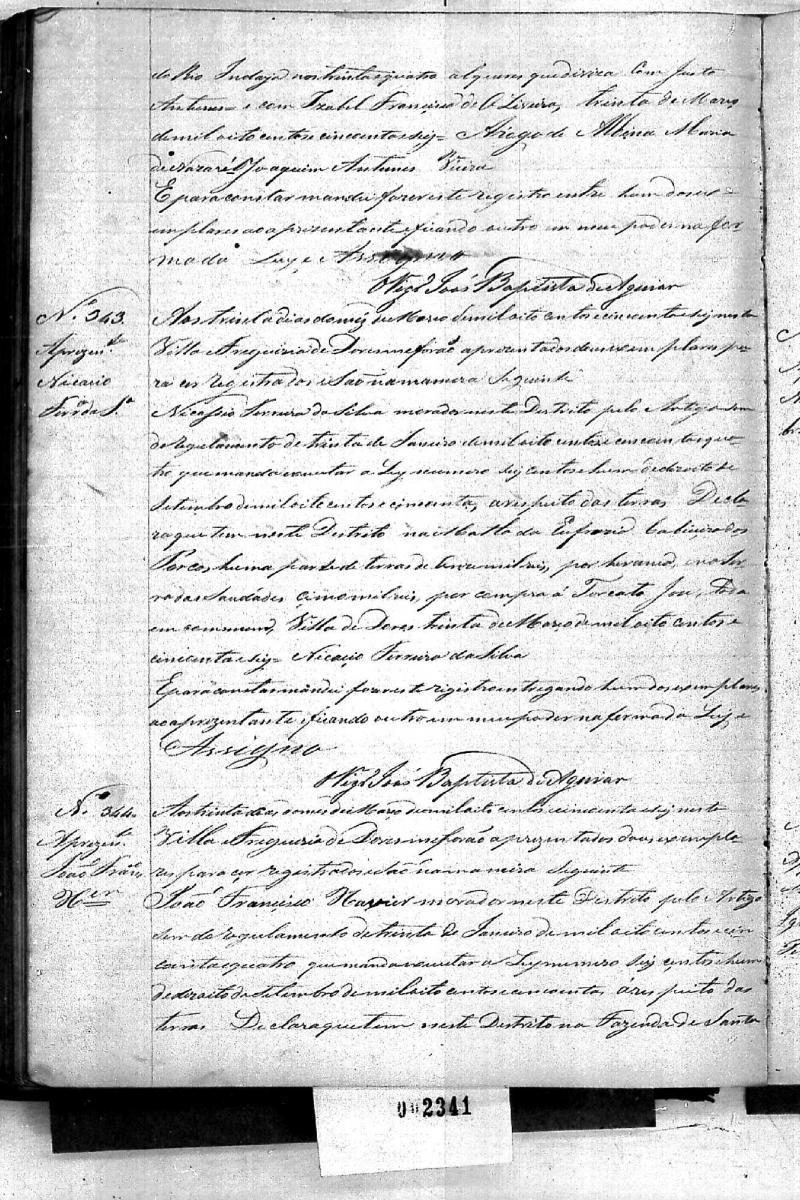 do Rio Indaja nos trinta e quatro alqueres que diviza Com Justo
Antunes e com Izabel Francisca de Oliveira, trinta de Março
de mil oito centos e cincoenta e seis = Arogo de Albina Maria
de Nazaré Joaquim Antunes Vieira
E para constar mandei fazer este registro entre hum dos ex-
emplares ao aprezentante e ficando outro em meu poder na for-
ma da Ley e Assigno
Vigr.o João Baptista de Aguiar
N.o 343.
Aprezen.te
Nicacio
Ferr.a da S.a
Aos trinta dias do mez de Março de mil oito centos e cincoenta e seis nesta
Villa e Freguizia de Dores me forão aprezentados dous exemplares pa-
ra ser registrados e São na maneira Seguinte
Nicassio Ferreira da Silva morador neste Destrito pelo Artigo sem
do regulamento de trinta de Janeiro de mil oito centos e cincoenta e qua-
tro que manda executar a Ley numero seis centos e hum de dezoito de
Setembro de mil oito centos e cincoenta, a respeito das terras Decla-
ra que tem neste Destrito na Matto da Eufrazia Cabiceira dos
Porcos huma parte de terras de mil reis, por herança, e na Ser-
ra das Saudades cinco mil reis, por compra á Torcato José, toda
em commum, Villa de Dores trinta de Março de mil oito centos e
cincoenta e seis = Nicacio Ferreira da Silva
E para constar mandei fazer este registro entregando hum dos exemplares
ao aprezentante e ficando outro em meu poder na forma da Ley e
Assigno
Vigr.o João Baptista de Aguiar
N.o 344.
Aprezen.te
João Fran.co
X.er
Aos trinta dias do mes de Março de mil oito centos e cincoenta e seis nesta
Villa e Freguizia de Dores me forão aprezentados dous exempla-
res para ser registrados e São na maneira Seguinte
João Francisco Xavier morador neste Destrito pelo Artigo
sem do regulamento de trinta de Janeiro de mil oito centos e cin-
coenta e quatro que manda executar a Ley numero seis centos e hum
de dezoito de Setembro de mil oito centos e cincoenta, a respeito das
terras Declara que tem neste Destrito na Fazenda de Santa
002341